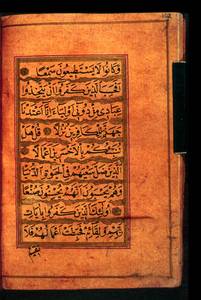 وَكَانُوا لَا يَسْتَطِيعُونَ سَمْعًا
أَفَحَسِبَ الَّذِينَ كَفَرُوا أَنْ يَتَّخِذُوا
عِبَادِي مِنْ دُونِي أَوْلِيَاءَ إِنَّا أَعْتَدْنَا
جَهَنَّمَ لِلْكَافِرِينَ نُزُلًا قُلْ هَلْ
نُنَبِّئُكُمْ بِالْأَخْسَرِينَ أَعْمَالًا
الَّذِينَ ضَلَّ سَعْيُهُمْ فِي الْحَيٰوةِ الدُّنْيَا
وَهُمْ يَحْسَبُونَ أَنَّهُمْ يُحْسِنُونَ صُنْعًا
أُولَئِكَ الَّذِينَ كَفَرُوا بِآيَاتِ
رَبِّهِمْ وَلِقَائِهِ فَحَبِطَتْ أَعْمَالُهُمْ فَلَا
نقيم